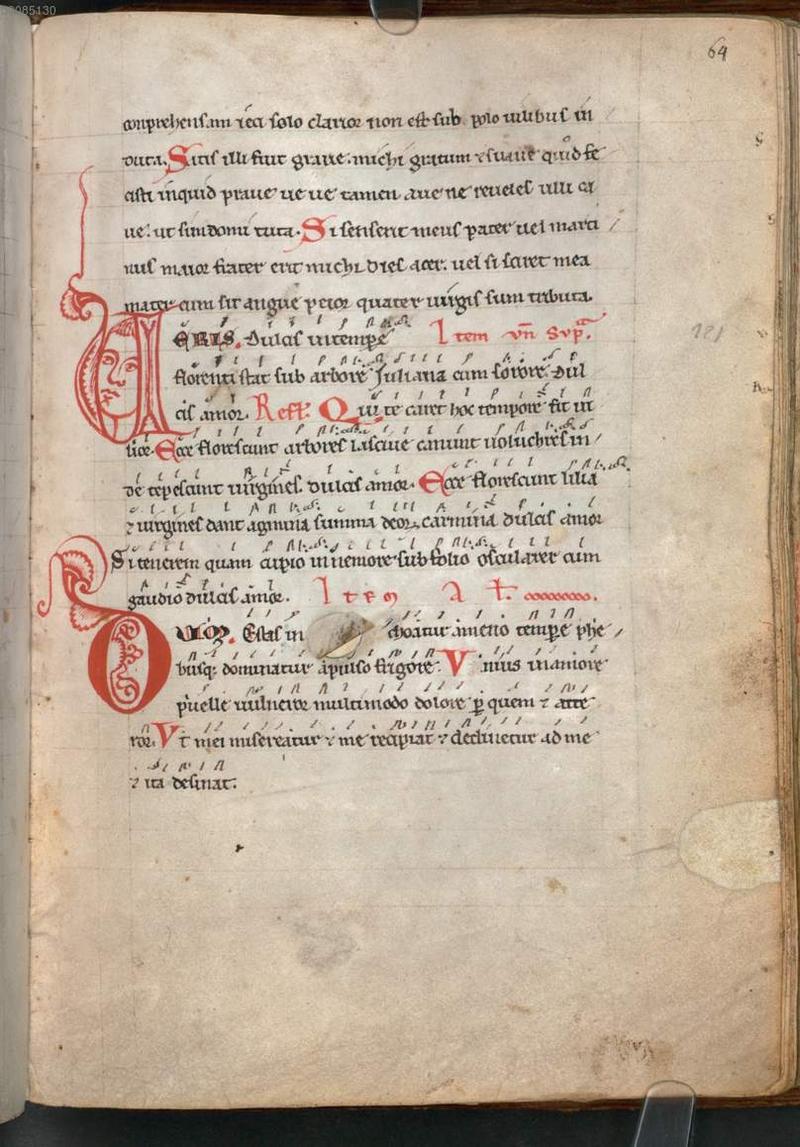 0085130
64
comprehensam rea solo clarior non est sub polo vilibus in
duta. Sitis illi fuit grave. michi gratum ⁊ suave quid fe
cisti inquid prave ve ve tamen. ave ne reveles ulli ca
ve. ut sim domi tuta. Si senserit meus pater vel marti
nus maior frater erit michi dies acer. vel si sciret mea
mater cum sit angue peior quater virgis sum tributa.
VERIS. dulcis in tempe Item un sup.
florenti stat sub arbore Juliana cum sorore. dul
cis amor. Refl. Qui te caret hoc tempore fit vi
lior. Ecce florescunt arbores lascive canunt volucres in
de tepescunt virgines. dulcis amor. Ecce florescunt lilia
⁊ virgines dant agmina summo deor carmina dulcis amor
Si tenerem quam cupio in nemore sub folio oscularer cum
gaudio dulcis amor. Item
Estas in choatur ameno tempe phe
busq; dominatur depulso frigore. Unius in amore
puelle vulneror multimodo dolore p quem ⁊ atte
ror. Ut mei misereatur ⁊ me recipiat ⁊ declinetur ad me
⁊ ita desinat.
121